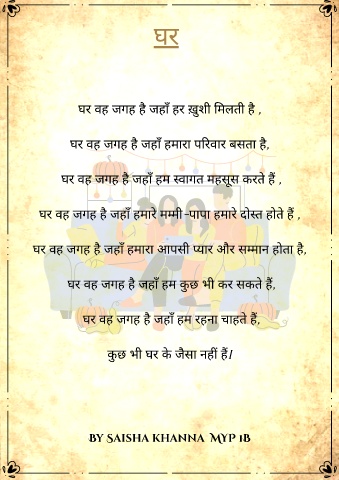 घर
घर वह जगह है जहाँ हर ख़ुशी मिलती है ,
घर वह जगह है जहाँ हमारा परिवार बसता है,
घर वह जगह है जहाँ हम स्वागत महसूस करते हैं ,
घर वह जगह है जहाँ हमारे मम्मी-पापा हमारे दोस्त होते हैं ,
घर वह जगह है जहाँ हमारा आपसी प्यार और सम्मान होता है,
घर वह जगह है जहाँ हम कुछ भी कर सकते हैं,
घर वह जगह है जहाँ हम रहना चाहते हैं,
कुछ भी घर के जैसा नहीं हैं!
BY SAISHA KHANNA MYP 1B